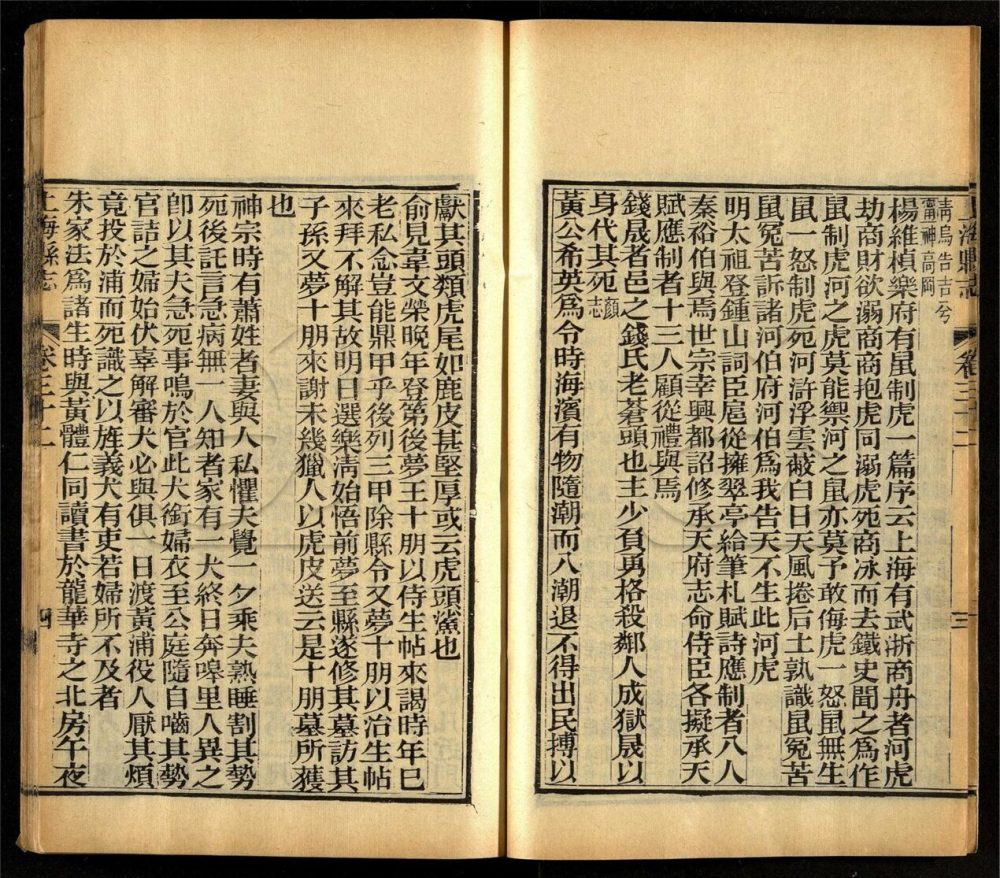 青烏告吉兮
甯神高岡
楊維楨樂府有鼠制虎一篇序云上海有武浙商舟者河虎
劫商財欲溺商商抱虎同溺虎死商泳而去鐵史聞之為作
鼠制虎河之虎莫能禦河之鼠亦莫予敢侮虎一怒鼠無生
鼠一怒制虎死河滸浮雲蔽白日天風捲后土孰識鼠冤苦
鼠冤苦訴諸河伯府河伯為我告天不生此河虎
明太祖登鍾山詞臣扈從擁翠亭給筆札賦詩應制者八人
秦裕伯與焉世宗幸興都詔修承天府志命侍臣各擬承天
賦應制者十三人顧從禮與焉
錢晟者邑之錢氏老蒼頭也主少負勇格殺鄰人成獄晟以
身代其死顏志
黃公希英為令時海濱有物隨潮而入潮退不得出民搏以
上海縣志
卷三十二
三
獻其頭類虎尾如鹿皮甚堅厚或云虎頭鯊也
俞見韋文榮晚年登第後夢王十朋以侍生帖來謁時年已
老私念豈能鼎甲乎後列三甲除縣令又夢十朋以治生帖
來拜不解其故明日選樂淸始悟前夢至縣遂修其墓訪其
子孫又夢十朋來謝未幾獵人以虎皮送云是十朋墓所獲
也
神宗時有蕭姓者妻與人私懼夫覺一夕乘夫熟睡割其勢
死後託言急病無一人知者家有一犬終日奔嘷里人異之
卽以其夫急死事鳴於官此犬銜婦衣至公庭隨自嚙其勢
官詰之婦始伏辜解審犬必與俱一日渡黃浦役人厭其煩
竟投於浦而死識之以旌義犬有吏若婦所不及者
朱家法為諸生時與黃體仁同讀書於龍華寺之北房午夜
上海縣志
卷三十二
四